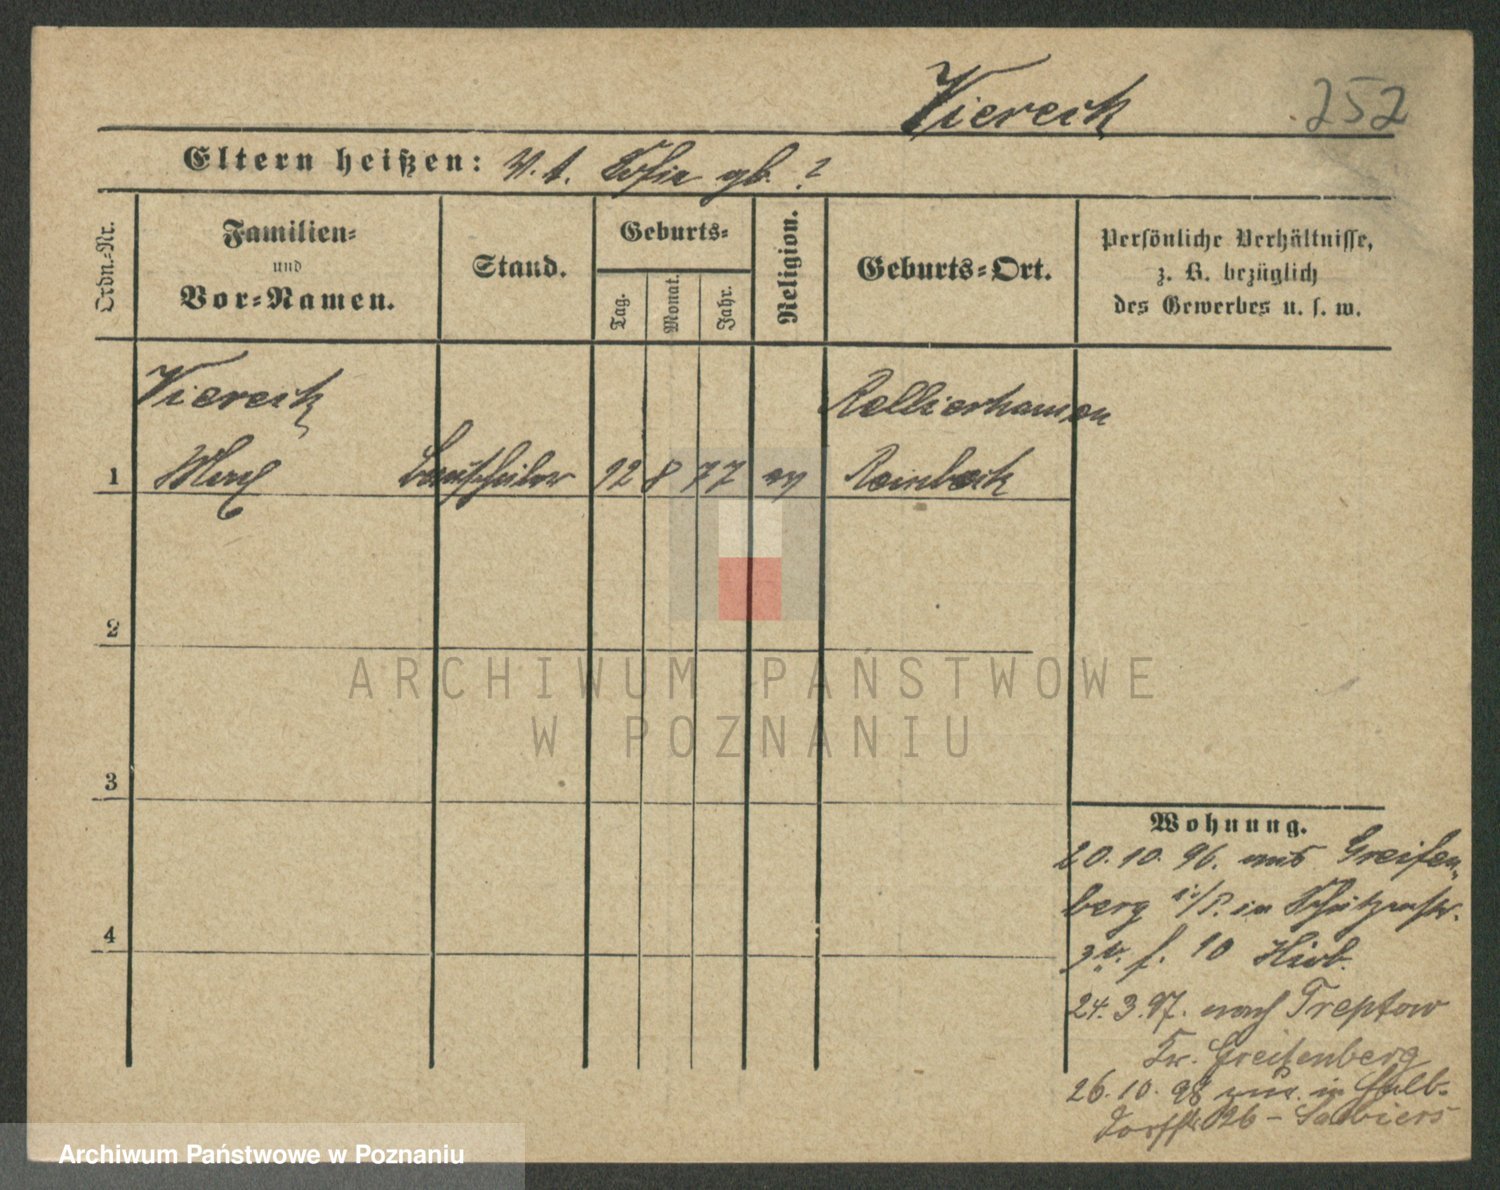 Viereck 252
Eltern heißen: W. A. Sofie gb. ?
Ordn.-Nr.
Familien-
und
Vor-Namen.
Stand.
Geburts-
Tag.
Monat.
Jahr.
Religion.
Geburts-Ort.
Persönliche Verhältnisse,
z. B. bezüglich
des Gewerbes u. s. w.
Viereck
1 Max 12 8 77 ev
Reinbeck
2
3
4
Wohnung.
20.10.96. aus Greifen-
berg i/P. in Schützenstr.
f. 10
24.3.97. nach Treptow
Kr. Greifenberg
26.10.98 in Halb-
dorfstr 26 -
ARCHIWUM PAŃSTWOWE
W POZNANIU
Archiwum Państwowe w Poznaniu